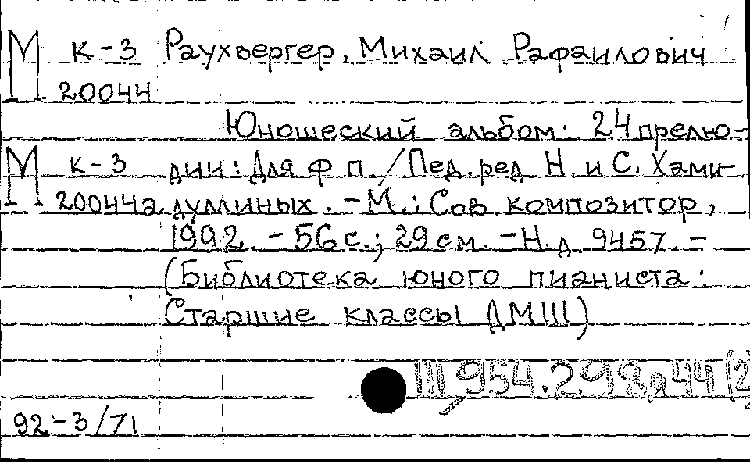 М к-3 Раухвергер, Михаил Рафаилович
20044
Юношеский альбом: 24 прелю-
М к-3 дии: Для ф п. / Пед. ред. Н. и С. Хами-
20044а дуллиных. - М.: Сов. композитор,
1992. - 56 с.; 29 см. - Н.д. 9457. -
(Библиотека юного пианиста:
Старшие классы ДМШ)
92-3/71